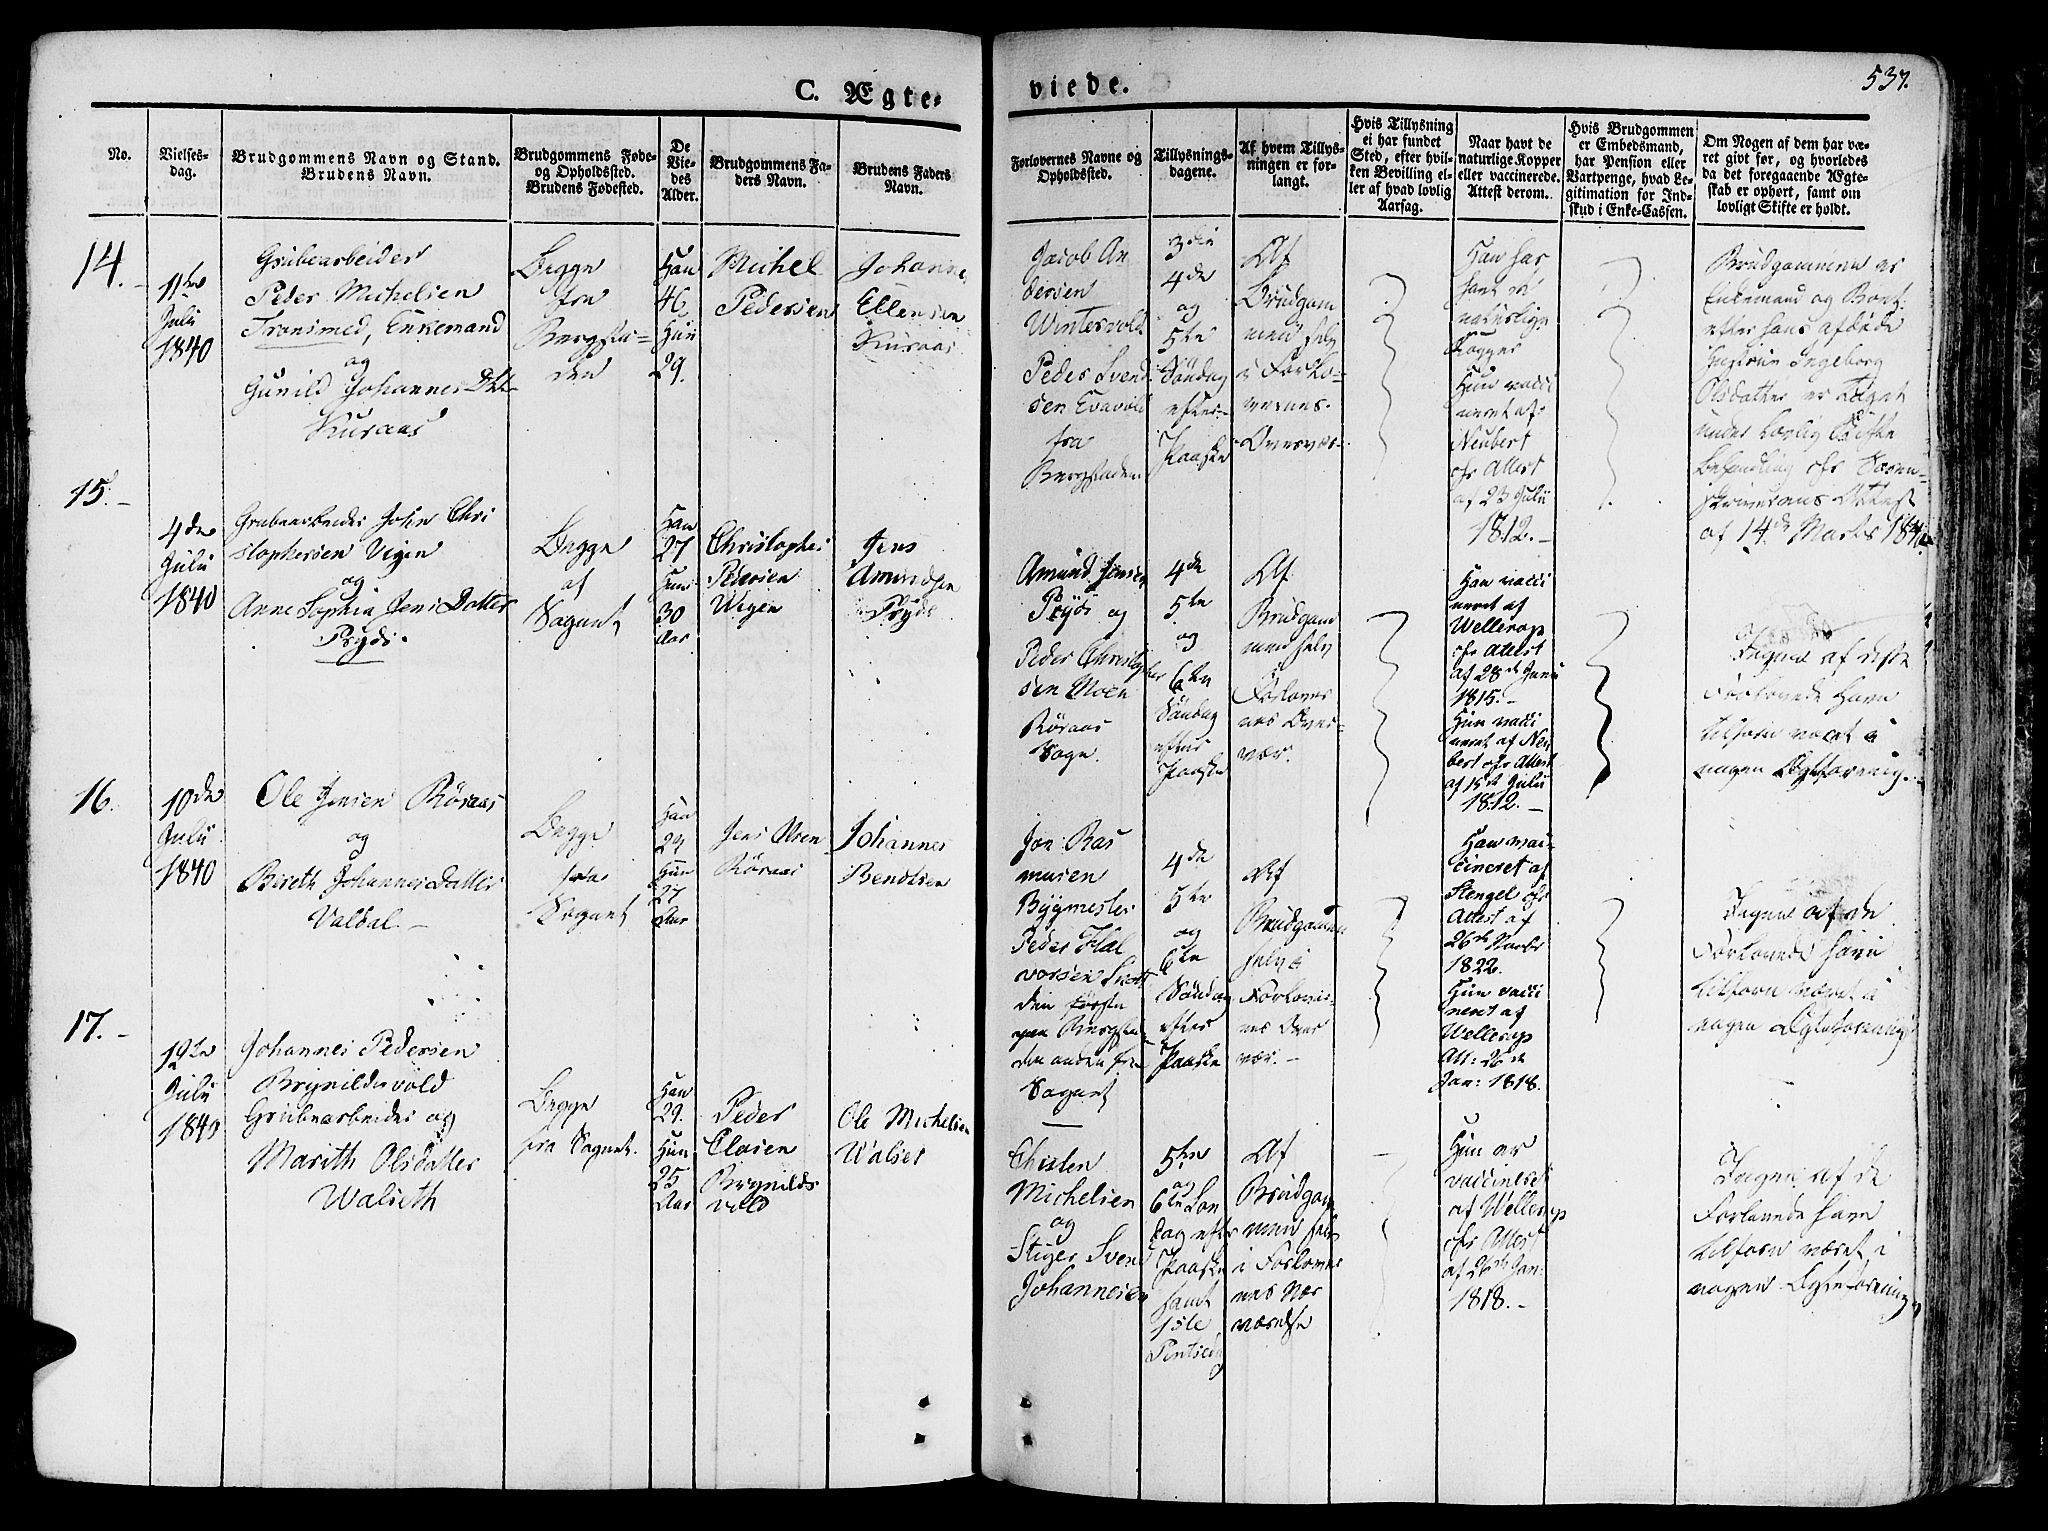 C. Ægte-
viede.
537.
No.
Vielses-
dag.
Brudgommens Navn og Stand.
Brudens Navn.
Brudgommens Føde-
og Opholdssted.
Brudens Fødested.
De
Vie-
des
Alder.
Brudgommens Fa-
ders Navn.
Brudens Faders
Navn.
Forlovernes Navne og
Opholdssted.
Tillysnings-
dagene.
Af hvem Tillys-
ningen er for-
langt.
Hvis Tillysning
ei har fundet
Sted, efter hvil-
ken Bevilling el-
ler af hvad lovlig
Aarsag.
Naar havt de
naturlige Kopper
eller vaccinerede.
Attest derom.
Hvis Brudgommen
er Embedsmand,
har Pension eller
Vartpenge, hvad Le-
gitimation for Ind-
skud i Enke-Cassen.
Om Nogen af dem har væ-
ret givt før, og hvorledes
da det foregaaende Ægte-
skab er ophørt, samt om
lovligt Skifte er holdt.
14.
11te
Juli
1840
Grubearbeider
Peder Michelsen
Tronsmed, Enkemand
og
Gunild Johannes Dtt
Kuraas
Begge
fra
Bergsta-
den
Han
46
Hun
29.
Michel
Pedersen
Johanne
Ellensen
Kuraas
Jacob An
dersen
Wintervold
Peder Svend
sen Evavold
fra
Bergstaden
3die
4de
og
5te
Søndag
efter
Paaske
Af
Brudgom
men selv
i Forlo-
vernes
Overvær
Han har
havt de
naturlige
Kopper
Hun vacci
neret af
Neubert
cfr Attest
af 23 Julii
1812.-
Brudgommen er
Enkemand og Boet
efter hans afdøde
Hustrue Ingeborg
Olsdatter er taget
under lovlig Skifte
behandling cfr Soren-
skriverens Attest
af 14de Marts 1840.
15.-
4de
Julii
1840
Grubearbeider John Chri
stophersen Vigen
og
Anne Sophia Jens Datter
Prÿds.
Begge
af
Sognet
Han
27
Hun
30
Aar
Christopher
Pedersen
Wigen
Jens
Amundsen
Prÿds
Amund Jensen
Prÿds og
Peder Christopher
sen Moen
Røraas
Sogn.
4de
5te
og
6te
Søndag
efter
Paaske
Af
Brudgom
men selv
i
Forlover
nes Over-
vær.
Han vacci
neret af
Wellerop
cfr Attest
af 28de Junii
1815.-
Hun vacci
neret af Neu
bert cfr Attest
af 15de Julii
1812.-
Ingen af disse
Forlovede have
tilforn været i
nogen Ægteforening.
16.
10de
Julii
1840
Ole Jensen Røraas
og
Bereth Johannes Datter
Valdal.-
Begge
fra
Sognet
Han
24
Hun
27
Aar
Jens Olsen
Røraas
Johannes
Bendtsen
Jon Ras
musen
Bÿgmester
Peder Hal
vorsen
den første
paa Bergsta
den anden fra
Sognet
4de
5te
og
6te
Søndag
efter
Paaske
Af
Brudgommen
selv i
Forlover-
nes Over
vær.-
Han vac
cineret af
Stengel cfr
Attest af
26de Novbr
1822.
Hun vacci
neret af
Wellerop
Att: 26de
Jan: 1818.
Ingen af de
Forlovede have
tilforn været i
nogen Ægteforening
17.-
19te
Julii
1840
Johannes Pedersen
Brynildsvold
Grubearbeider og
Marith Olsdatter
Walseth
Begge
fra Sognet.
Han
29.
Hun
25
Aar
Peder
Clasen
Brynilds
vold
Ole Michelsen
Walset
Christen
Michelsen
og
Stiger Svend
Johannesen
5te
og
6te Søn
dag efter
Paaske
samt
1ste
Pintsedag
Af
Brudgom
men selv
i Forlover
nes Nær
værelse
Hun er
vaccineret
af Wellerop
cfr Attest
af 26de Jan:
1818.-
Ingen af de
Forlovede have
tilforn været i
nogen Ægteforening